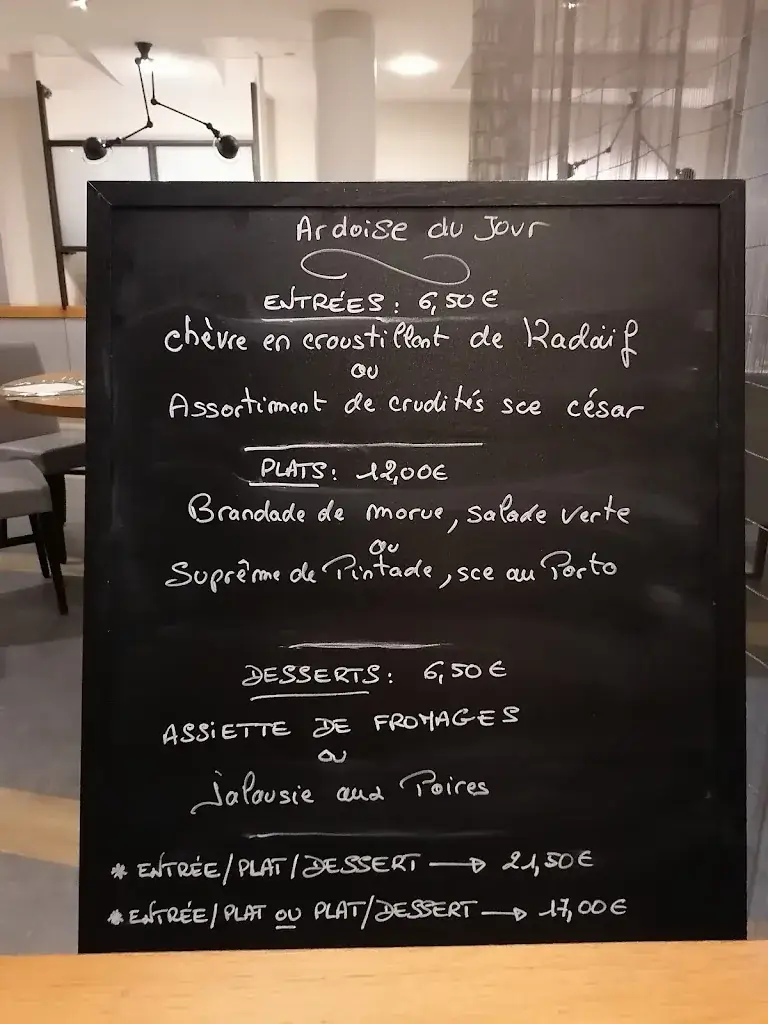 Ardoise du Jour
ENTRÉES : 6,50 €
chèvre en croustillant de Kadaïf
ou
Assortiment de crudités sce césar
PLATS : 12,00€
Brandade de morue, salade verte
ou
Suprême de Pintade, sce au Porto
DESSERTS : 6,50 €
ASSIETTE DE FROMAGES
ou
Jalousie aux Poires
* ENTRÉE/PLAT/DESSERT → 21,50 €
* ENTRÉE/PLAT OU PLAT/DESSERT → 17,00 €